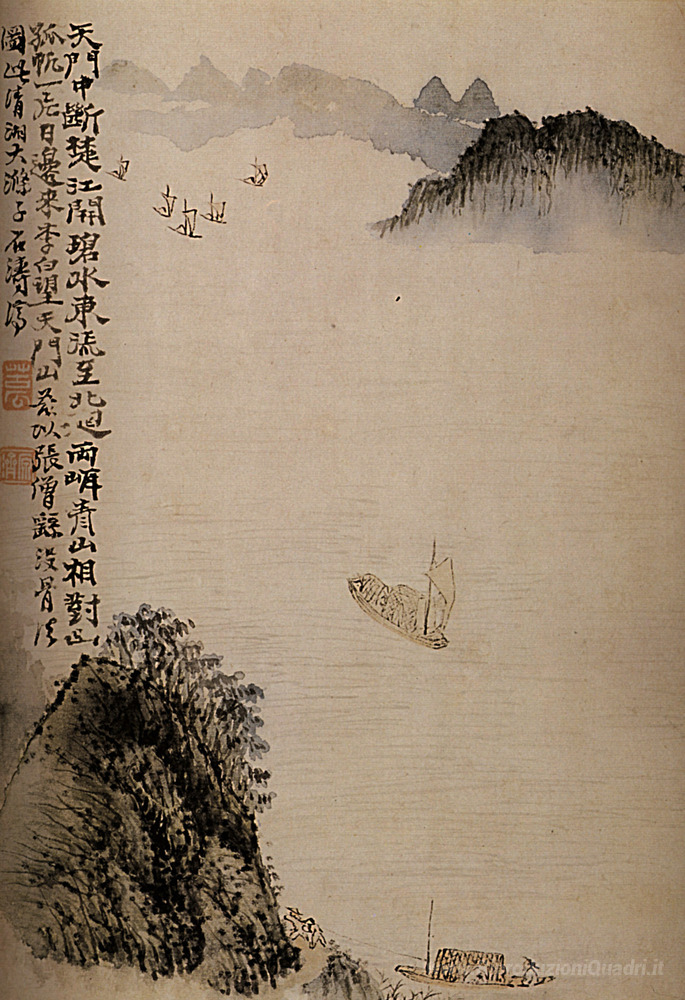 天門中斷楚江開碧水東流至北迴兩岸青山相對出
孤帆一片日邊來李白望天門山茲以張僧繇没骨法
圖此清湘大滌子石濤濟
oduzioniQuadri.it